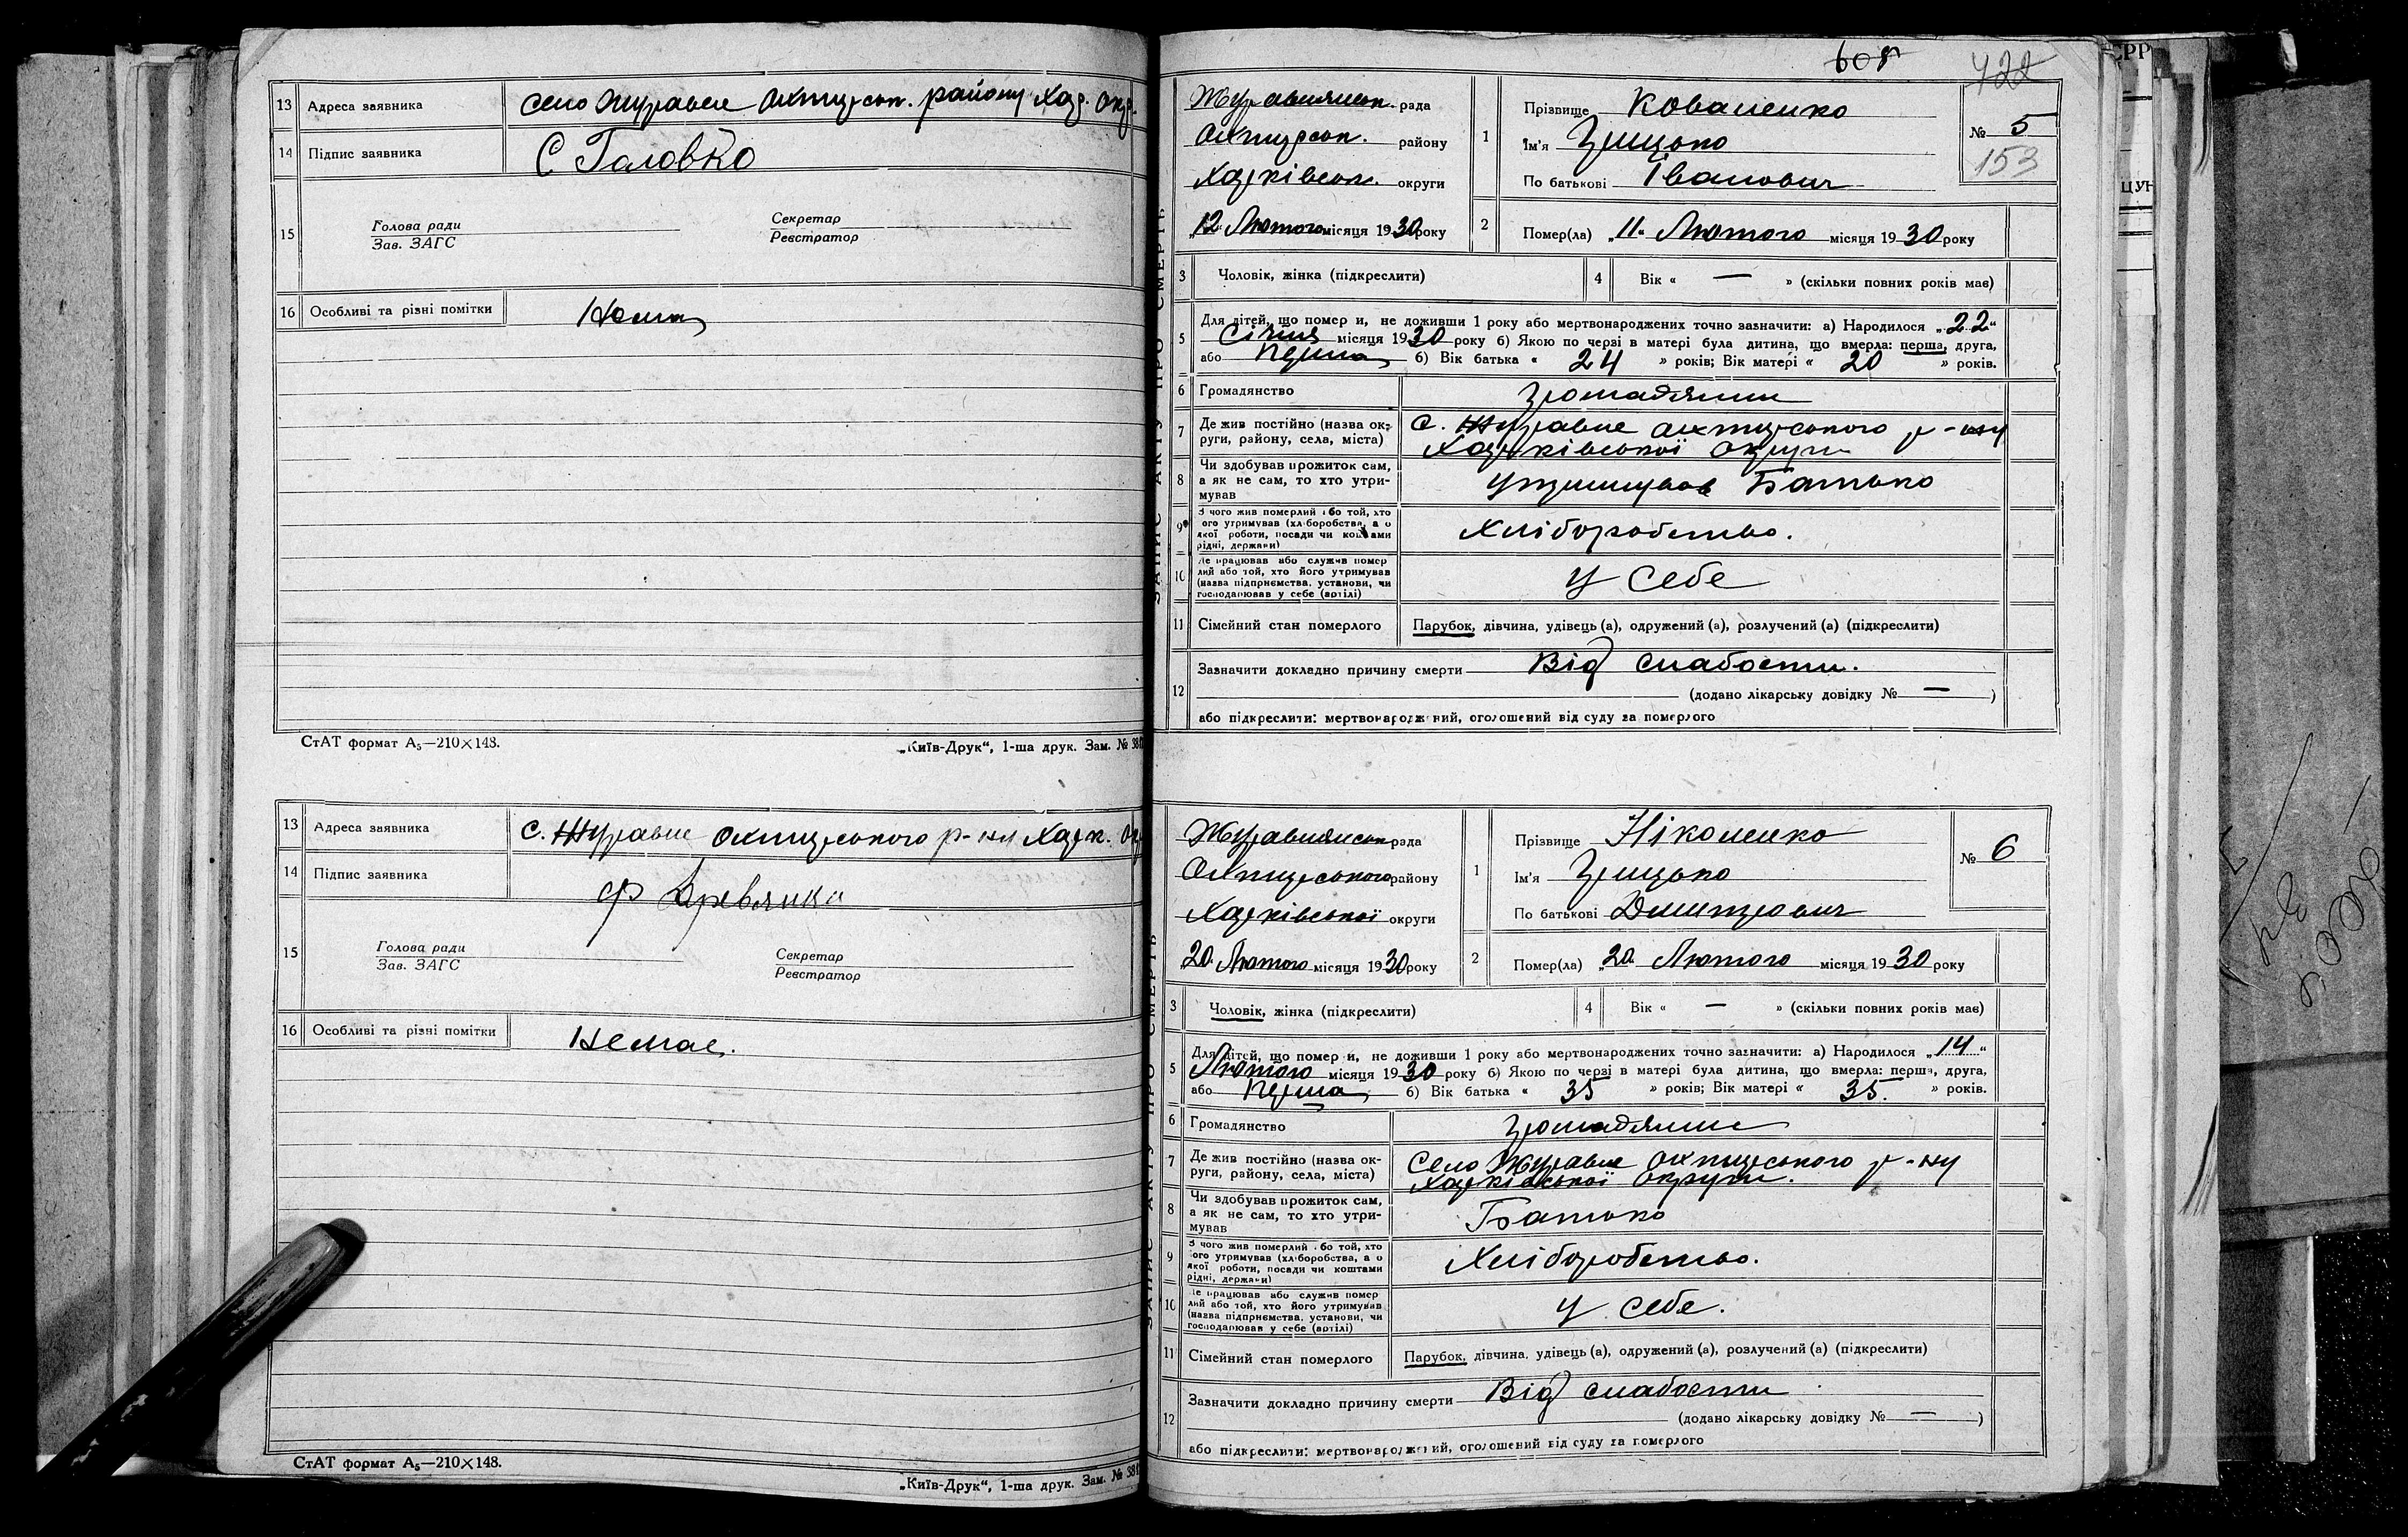 13 Адреса заявника село Журавне Охтирськ. району Харк. Окр.
14 Підпис заявника С Головко
15 Голова ради
Зав. ЗАГС
Секретар
Реєстратор
16 Особливі та різні помітки Нема
СтАТ формат А₅—210×148.
„Київ-Друк“, 1-ша друк. Зам. № 38
13 Адреса заявника с. Журавне Охтирського р-ну Харк. Ок
14 Підпис заявника Ф Древянка
15 Голова ради
Зав. ЗАГС
Секретар
Реєстратор
16 Особливі та різні помітки Немає.
СтАТ формат А₅—210×148.
„Київ-Друк“, 1-ша друк. Зам. № 38
608 422
ЗАПИС АКТУ ПРО СМЕРТЬ
Журавлянськ. рада
Охтирськ. району
Харківськ. округи
„12“ Лютого місяця 1930 року
1 Прізвище Коваленко
Ім'я Грицько
По батькові Іванович
№ 5
153
2 Помер(ла) „11“ Лютого місяця 1930 року
3 Чоловік, жінка (підкреслити)
4 Вік « — » (скільки повних років має)
5 Для дітей, що помер и, не доживши 1 року або мертвонароджених точно зазначити: а) Народилося „22“
Січня місяця 1930 року б) Якою по черзі в матері була дитина, що вмерла: перша, друга,
або перша б) Вік батька « 24 » років; Вік матері « 20 » років.
6 Громадянство громадянин
7 Де жив постійно (назва ок-
руги, району, села, міста)
с. Журавне Охтирського р-ну
Харківської Округи
8 Чи здобував прожиток сам,
а як не сам, то хто утри-
мував
утримував Батько
9 З чого жив померлий або той, хто
його утримував (хліборобства, а о
якої роботи, посади чи коштами
рідні, держави)
Хліборобство.
10 Де працював або служив помер
лий або той, хто його утримував
(назва підприємства, установи, чи
господарював у себе (артілі)
У себе
11 Сімейний стан померлого Парубок, дівчина, удівець (а), одружений (а), розлучений (а) (підкреслити)
12 Зазначити докладно причину смерти Від слабости.
(додано лікарську довідку № — )
або підкреслити: мертвонароджений, оголошений від суду за померлого
ЗАПИС АКТУ ПРО СМЕРТЬ
Журавлянськ рада
Охтирського району
Харківської округи
20. Лютого місяця 1930 року
1 Прізвище Ніколенко
Ім'я Грицько
По батькові Дмитрович
№ 6
2 Помер(ла) „20“ Лютого місяця 1930 року
3 Чоловік, жінка (підкреслити)
4 Вік « — » (скільки повних років має)
5 Для дітей, що помер и, не доживши 1 року або мертвонароджених точно зазначити: а) Народилося „14“
Лютого місяця 1930 року б) Якою по черзі в матері була дитина, що вмерла: перша, друга,
або перша б) Вік батька « 35 » років; Вік матері « 35. » років.
6 Громадянство громадянин
7 Де жив постійно (назва ок-
руги, району, села, міста)
Село Журавне Охтирського р-ну
Харківської Округи.
8 Чи здобував прожиток сам,
а як не сам, то хто утри-
мував
Батько
9 З чого жив померлий або той, хто
його утримував (хліборобства, а о
якої роботи, посади чи коштами
рідні, держави)
Хліборобство.
10 Де працював або служив помер
лий або той, хто його утримував
(назва підприємства, установи, чи
господарював у себе (артілі)
У себе.
11 Сімейний стан померлого Парубок, дівчина, удівець (а), одружений (а), розлучений (а) (підкреслити)
12 Зазначити докладно причину смерти Від слабости
(додано лікарську довідку № — )
або підкреслити: мертвонароджений, оголошений від суду за померлого